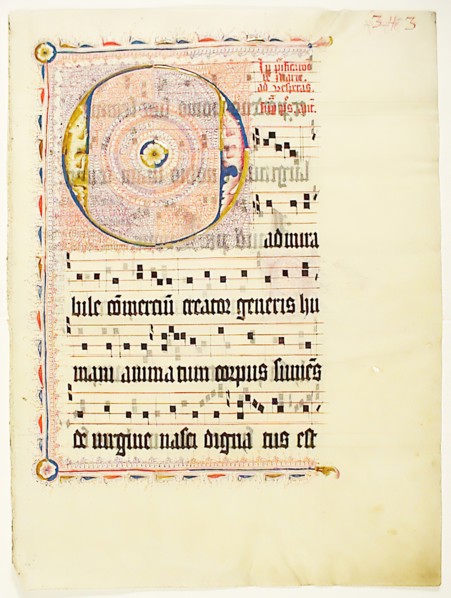 343
In
Marie.
ad vesperas.
O admira
bile cōmerciū creator generis hu
mani animatum corpus sumēs
de uirgine nasci digna tus est